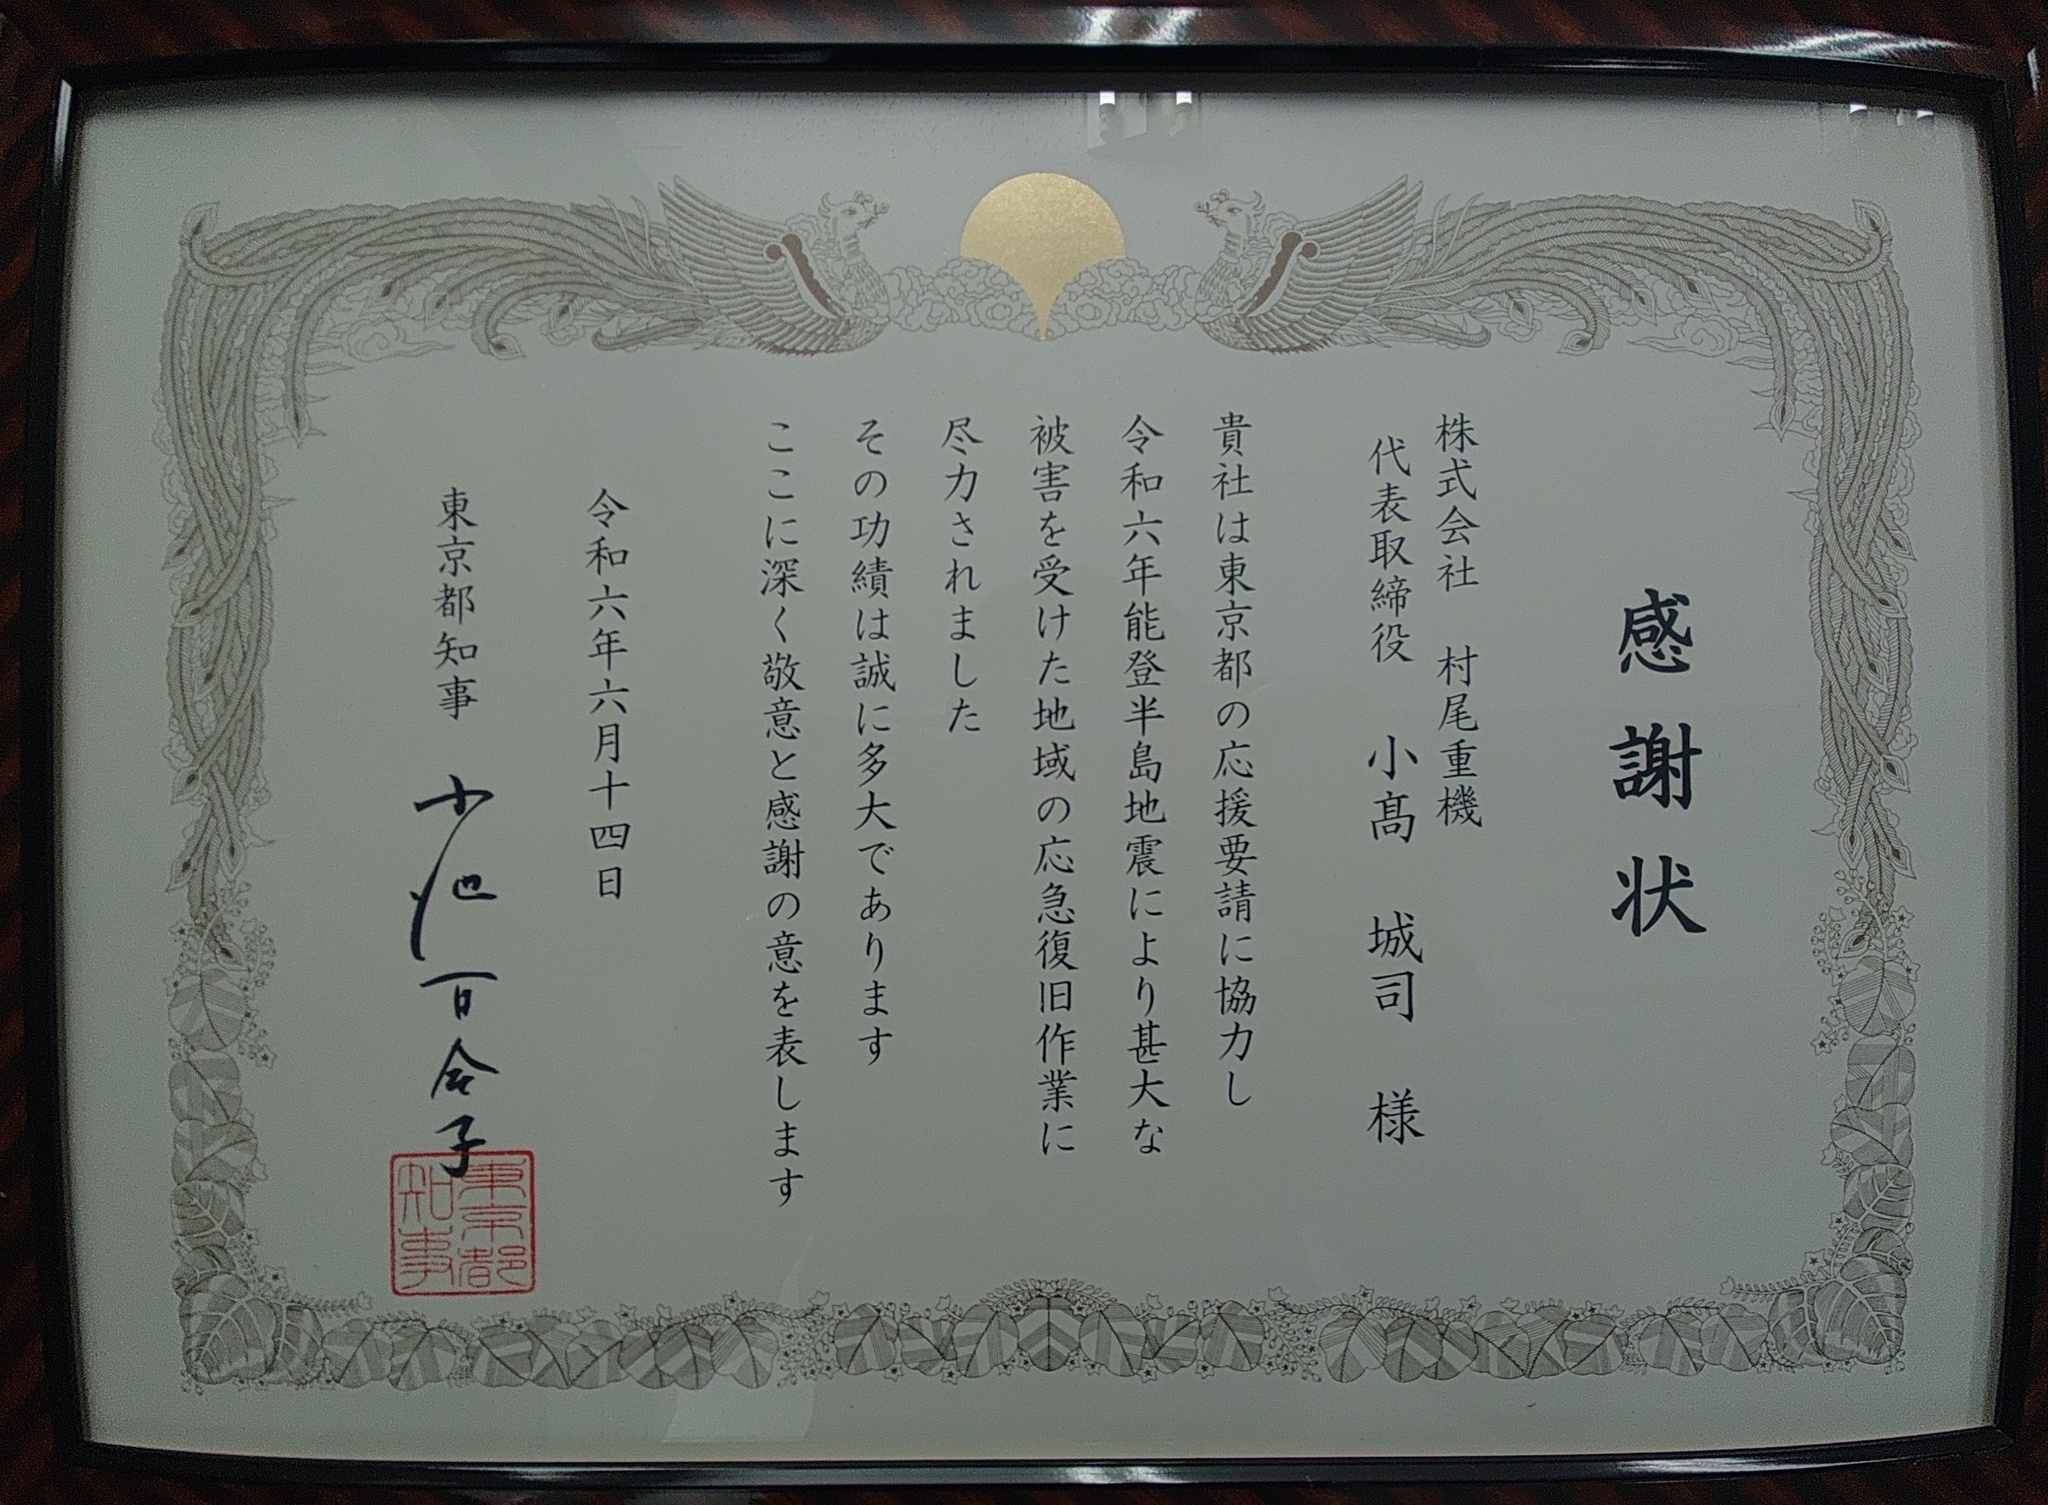 感謝状
株式会社　村尾重機
代表取締役　小髙　城司　様
貴社は東京都の応援要請に協力し
令和六年能登半島地震により甚大な
被害を受けた地域の応急復旧作業に
尽力されました
その功績は誠に多大であります
ここに深く敬意と感謝の意を表します
令和六年六月十四日
東京都知事　小池百合子
東京都
知事